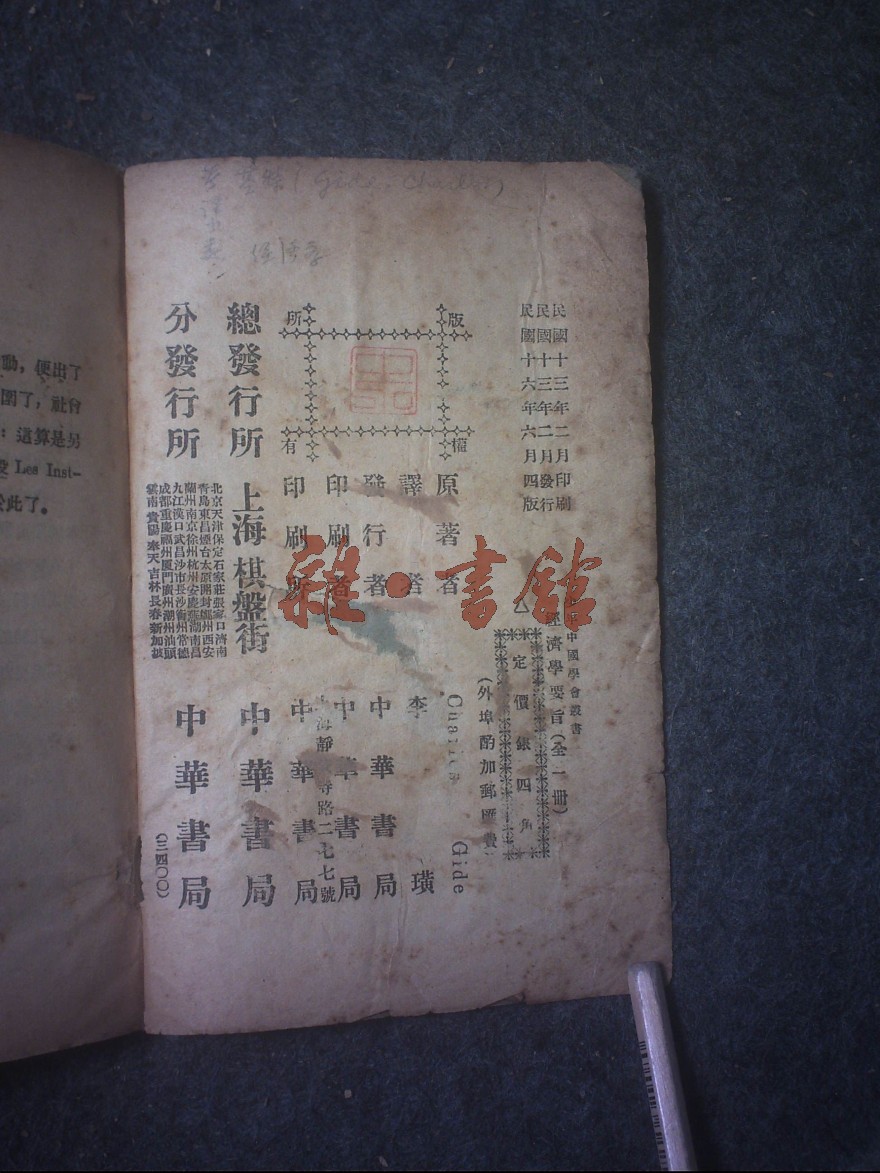 動，便出了
圍了，社會
：這算是另
Les Inst-
於此了。
(Gide, Charles)
民國十三年二月印刷
民國十三年二月發行
民國十六年六月四版
中國學會叢書
經濟學要旨（全一冊）
定價銀四角
（外埠酌加郵匯費
版權所有
原著者 Charles Gide
譯者 李璜
發行者 中華書局
印刷者 中華書局
上海靜安寺路二七七號
印刷所 中華書局
總發行所 上海棋盤街 中華書局
分發行所 中華書局
北京天津保定石家莊張家口濟南
青島東昌煙台太原開封鄭州西安
蘭州南京徐州杭州安慶蕪湖南昌
九江漢口武昌沙市長沙衡州常德
成都重慶福州廈門廣州潮州汕頭
雲南貴陽奉天吉林長春新加坡
（三四〇〇）
雜·書館